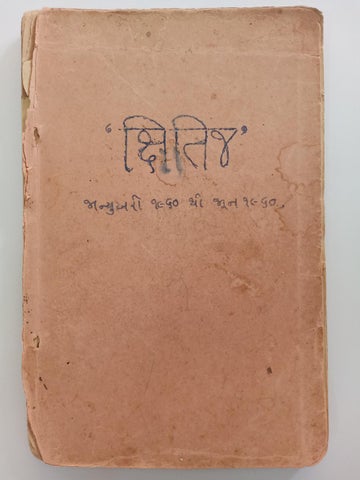 ‘ક્ષિતિજ’
જાન્યુઆરી ૧૯૬૦ થી જૂન ૧૯૬૦